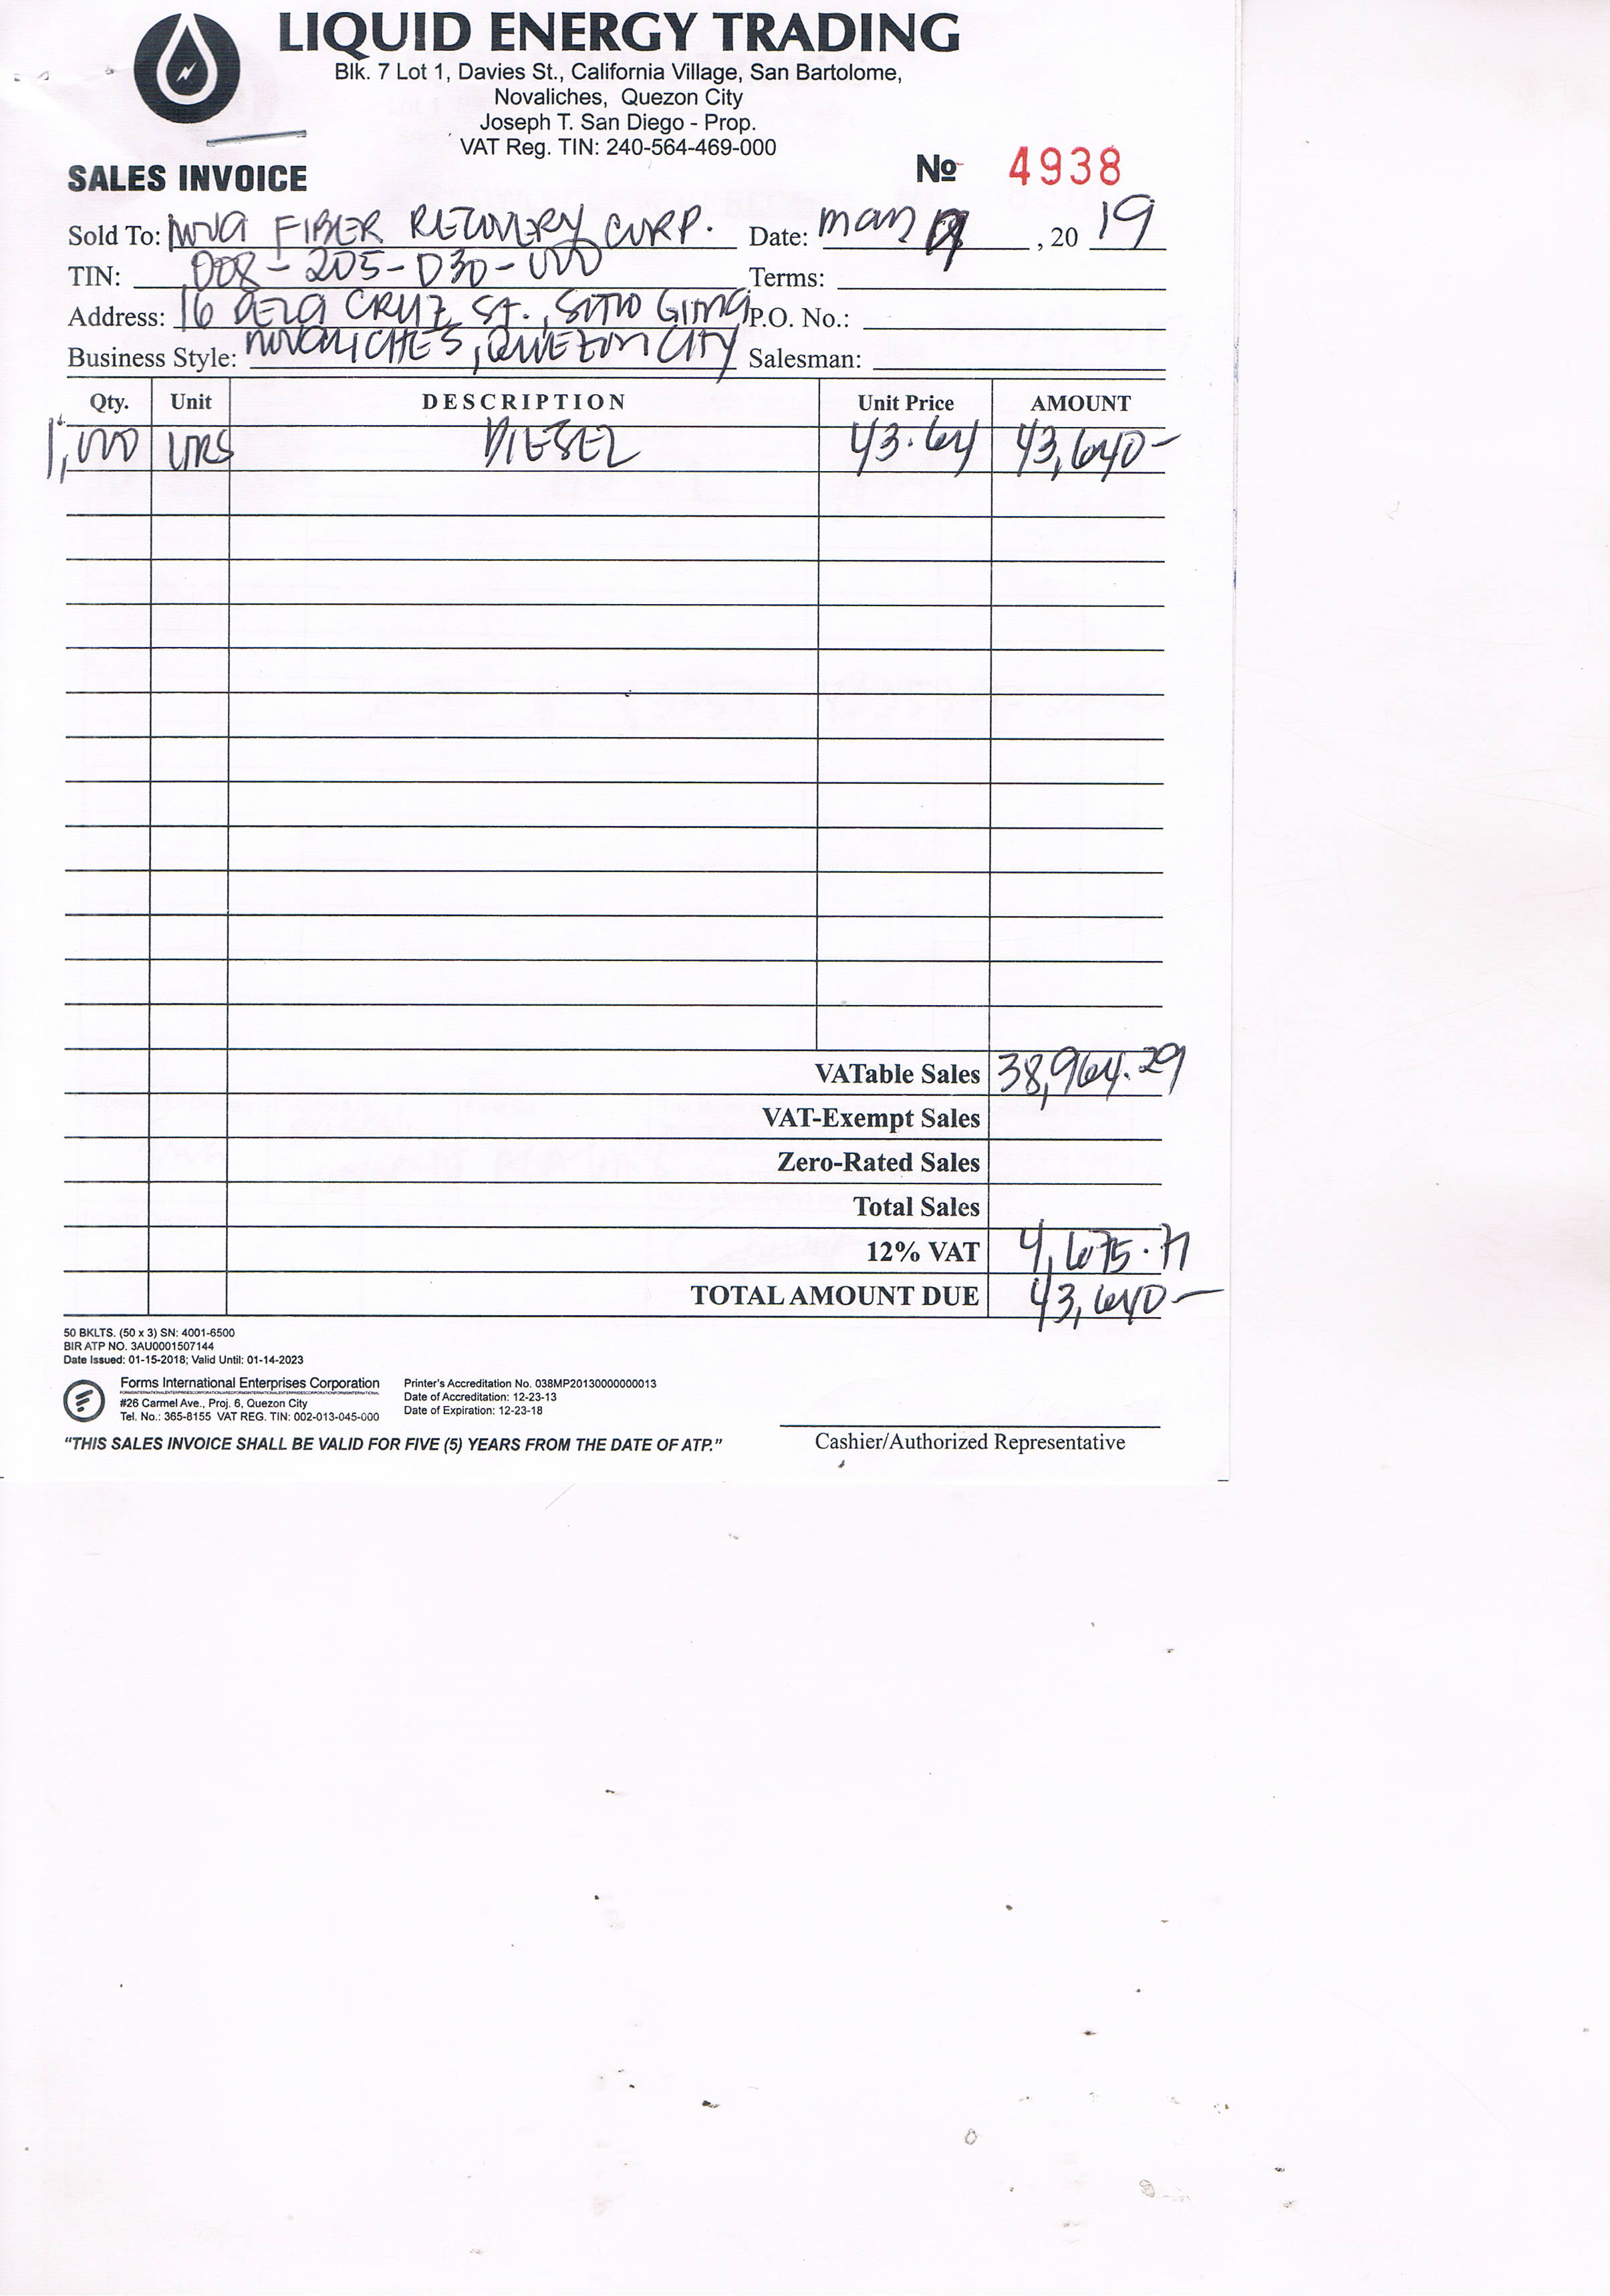 LIQUID ENERGY TRADING
Blk. 7 Lot 1, Davies St., California Village, San Bartolome,
Novaliches, Quezon City
Joseph T. San Diego - Prop.
VAT Reg. TIN: 240-564-469-000
SALES INVOICE
№ 4938
Sold To: NOVA FIBER RECOVERY CORP. Date: , 20 19
TIN: 008-205-030-000 Terms:
Address: 16 DELA CRUZ ST., SITIO GITNA P.O. No.:
Business Style: NOVALICHES, QUEZON CITY Salesman:
Qty. Unit DESCRIPTION Unit Price AMOUNT
1,000 LTRS DIESEL 43.64 43,640-
VATable Sales 38,964.29
VAT-Exempt Sales
Zero-Rated Sales
Total Sales
12% VAT 4,675.71
TOTAL AMOUNT DUE 43,640-
50 BKLTS. (50 x 3) SN: 4001-6500
BIR ATP NO. 3AU0001507144
Date Issued: 01-15-2018; Valid Until: 01-14-2023
Forms International Enterprises Corporation
#26 Carmel Ave., Proj. 6, Quezon City
Tel. No.: 365-8155 VAT REG. TIN: 002-013-045-000
Printer's Accreditation No. 038MP20130000000013
Date of Accreditation: 12-23-13
Date of Expiration: 12-23-18
"THIS SALES INVOICE SHALL BE VALID FOR FIVE (5) YEARS FROM THE DATE OF ATP."
Cashier/Authorized Representative